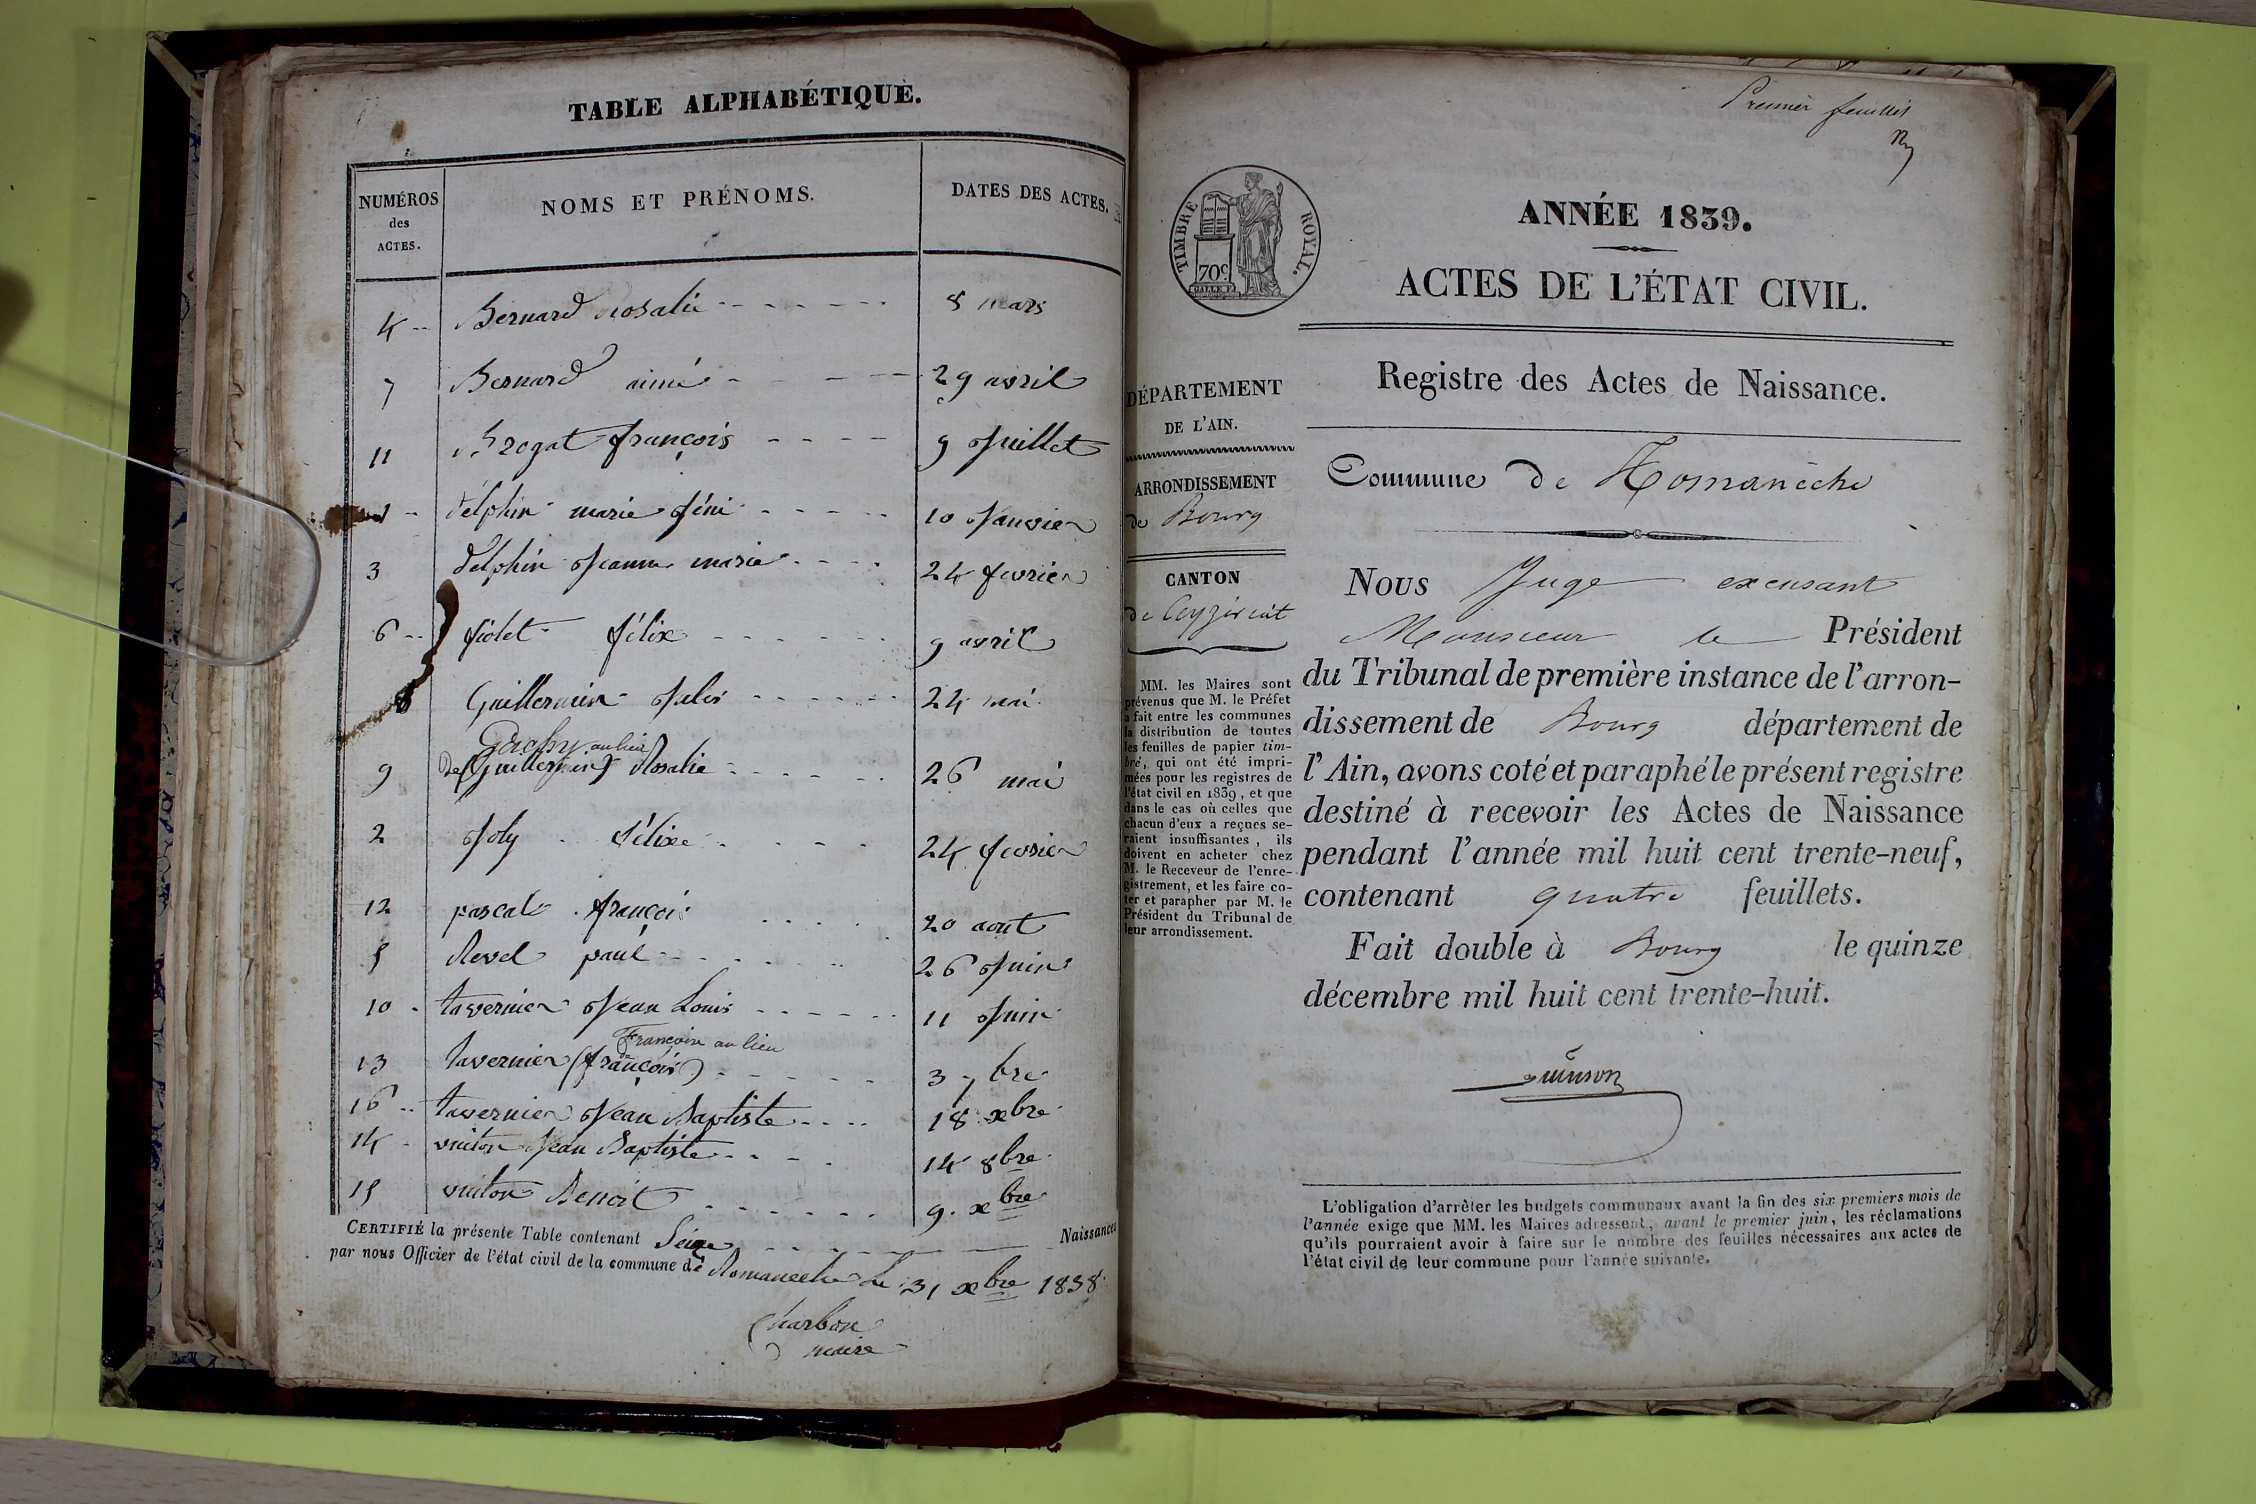 TABLE ALPHABÉTIQUE.
NUMÉROS des ACTES. NOMS ET PRÉNOMS. DATES DES ACTES.
4 Bernard rosalie 8 mars
7 Bernard aimé 29 avril
11 Brogat françois 9 Juillet
1 delphin marie 10 Janvier
3 delphin Jeanne marie 24 fevrier
6 fiolet félix 9 avril
8 Guillermin Jules 24 mai
au lieu
9 de (Guillermin) Rosalie 26 mai
2 Joly félix 24 fevrier
12 pascal françois 20 aout
5 Revel paul 26 Juin
10 tavernier Jean Louis 11 Juin
Françoise au lieu
13 tavernier (françois) 3 7bre
16 tavernier Jean Baptiste 18 xbre
14 viciton Jean Baptiste 14 8bre
15 viciton Benoit 9 xbre
CERTIFIÉ la présente Table contenant Seize Naissances
par nous Officier de l'état civil de la commune de Romaneche Le 31 xbre 1838
Charbon
maire
Premier feuillet
TIMBRE ROYAL.
70c
ANNÉE 1839.
ACTES DE L'ÉTAT CIVIL.
Registre des Actes de Naissance.
DÉPARTEMENT
DE L'AIN.
ARRONDISSEMENT
de Bourg
CANTON
de Ceyzeriat
MM. les Maires sont
prévenus que M. le Préfet
a fait entre les communes
la distribution de toutes
les feuilles de papier tim-
bré, qui ont été impri-
mées pour les registres de
l'état civil en 1839, et que
dans le cas où celles que
chacun d'eux a reçues se-
raient insuffisantes, ils
doivent en acheter chez
M. le Receveur de l'enre-
gistrement, et les faire co-
ter et parapher par M. le
Président du Tribunal de
leur arrondissement.
Commune de Romanèche
Nous Juge excusant
Monsieur le Président
du Tribunal de première instance de l'arron-
dissement de Bourg département de
l'Ain, avons coté et paraphé le présent registre
destiné à recevoir les Actes de Naissance
pendant l'année mil huit cent trente-neuf,
contenant quatre feuillets.
Fait double à Bourg le quinze
décembre mil huit cent trente-huit.
L'obligation d'arrêter les budgets communaux avant la fin des six premiers mois de
l'année exige que MM. les Maires adressent, avant le premier juin, les réclamations
qu'ils pourraient avoir à faire sur le nombre des feuilles nécessaires aux actes de
l'état civil de leur commune pour l'année suivante.